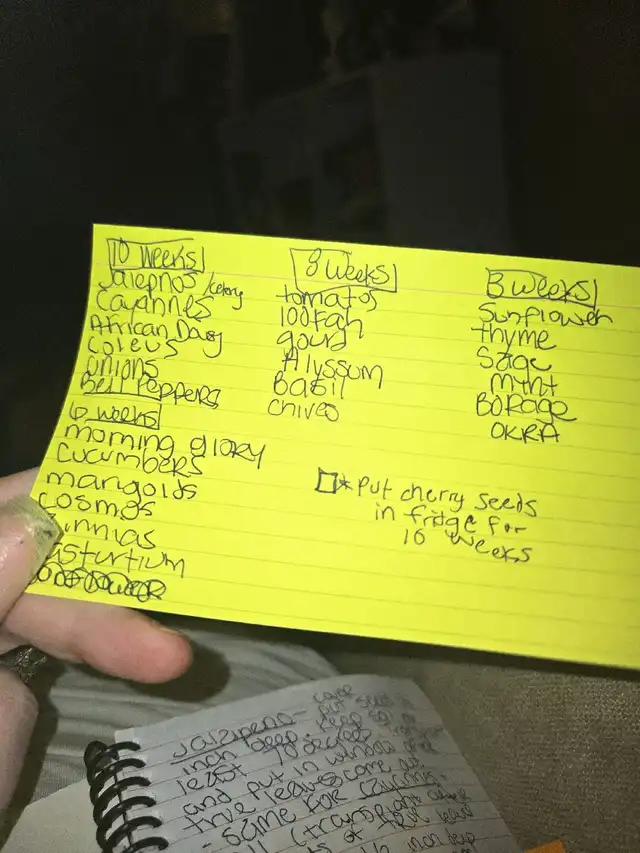 10 weeks
Jalepnos /celery
Cayannes
African Dasy
coleus
onions
Bell Peppers
6 weeks
morning glory
cucumbers
mangolds
cosmos
innias
asturtium
8 weeks
tomatos
loofah
gourd
Alyssum
Basil
chives
3 weeks
Sunflower
thyme
Sage
mynt
BORage
OKRA
* Put cherry seeds
in fridge for
10 weeks
Jalapeno - 
inch deep. keep
least 70 degrees
and put in window
true leaves come out
- same for Cayenne.
(transplant